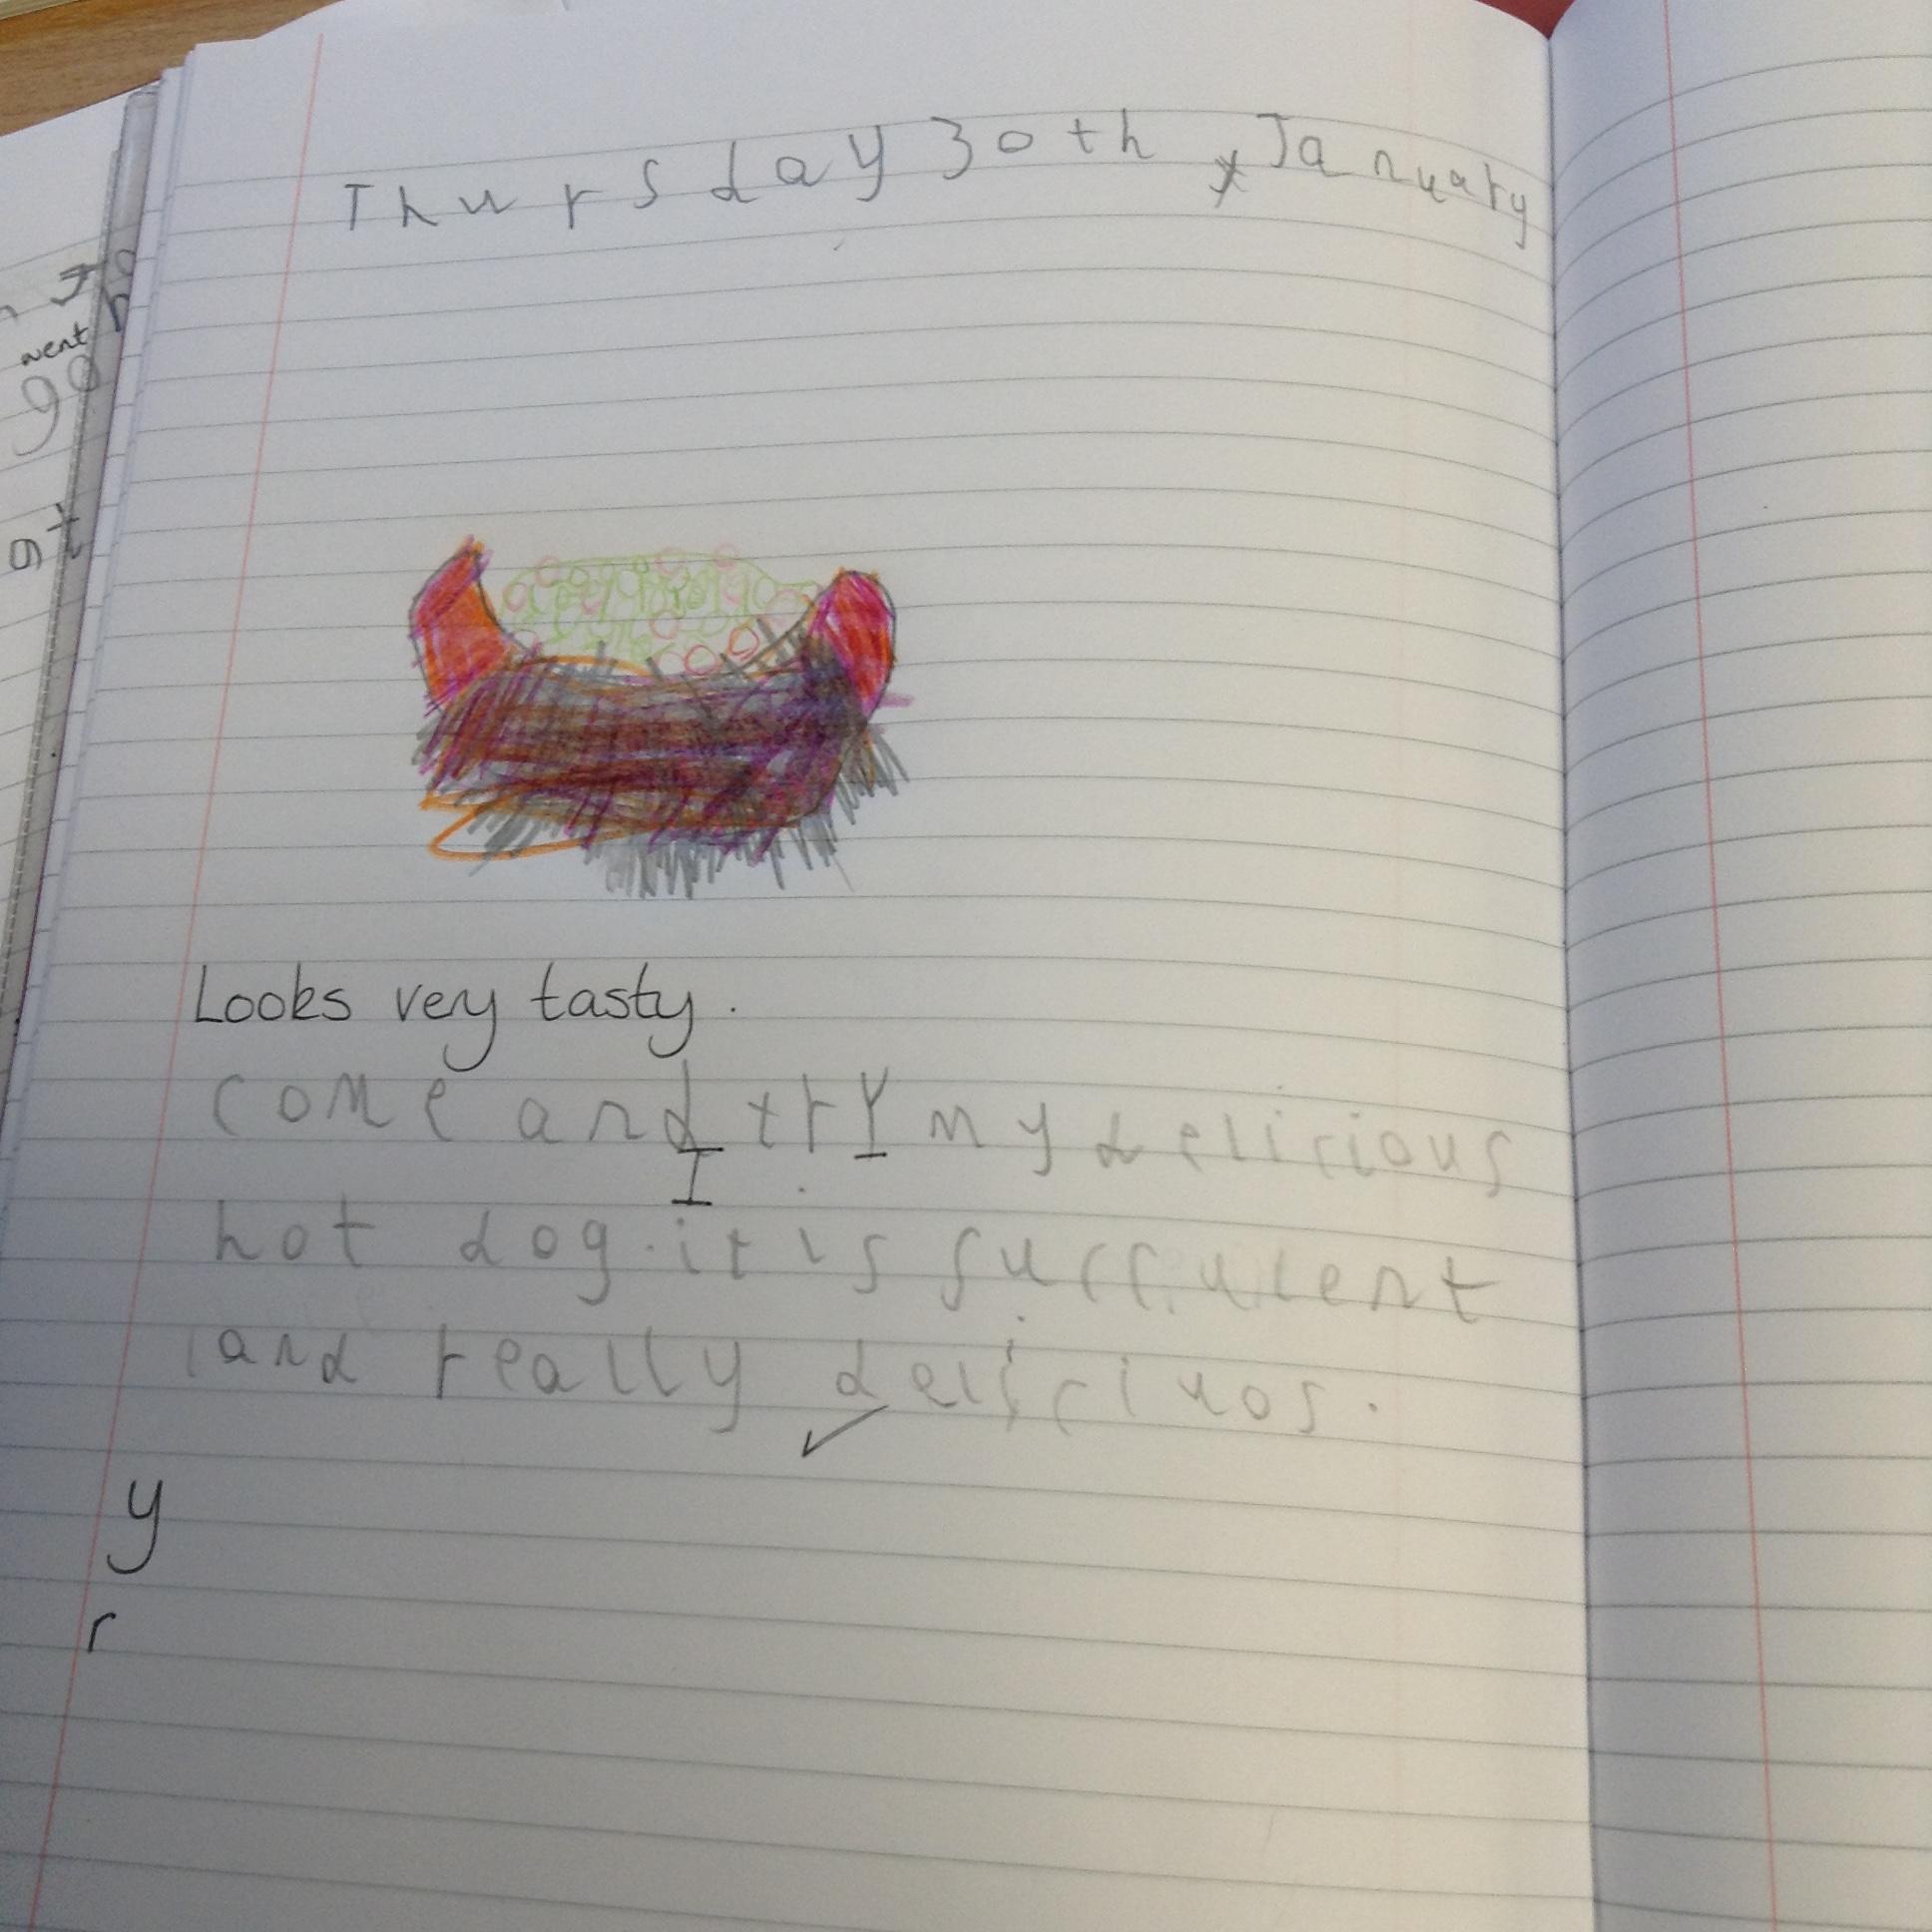 Thursday 30th January
went
go
Looks very tasty.
come and try my delicious
I
hot dog. it is succulent
and really deliciuos.
y
r